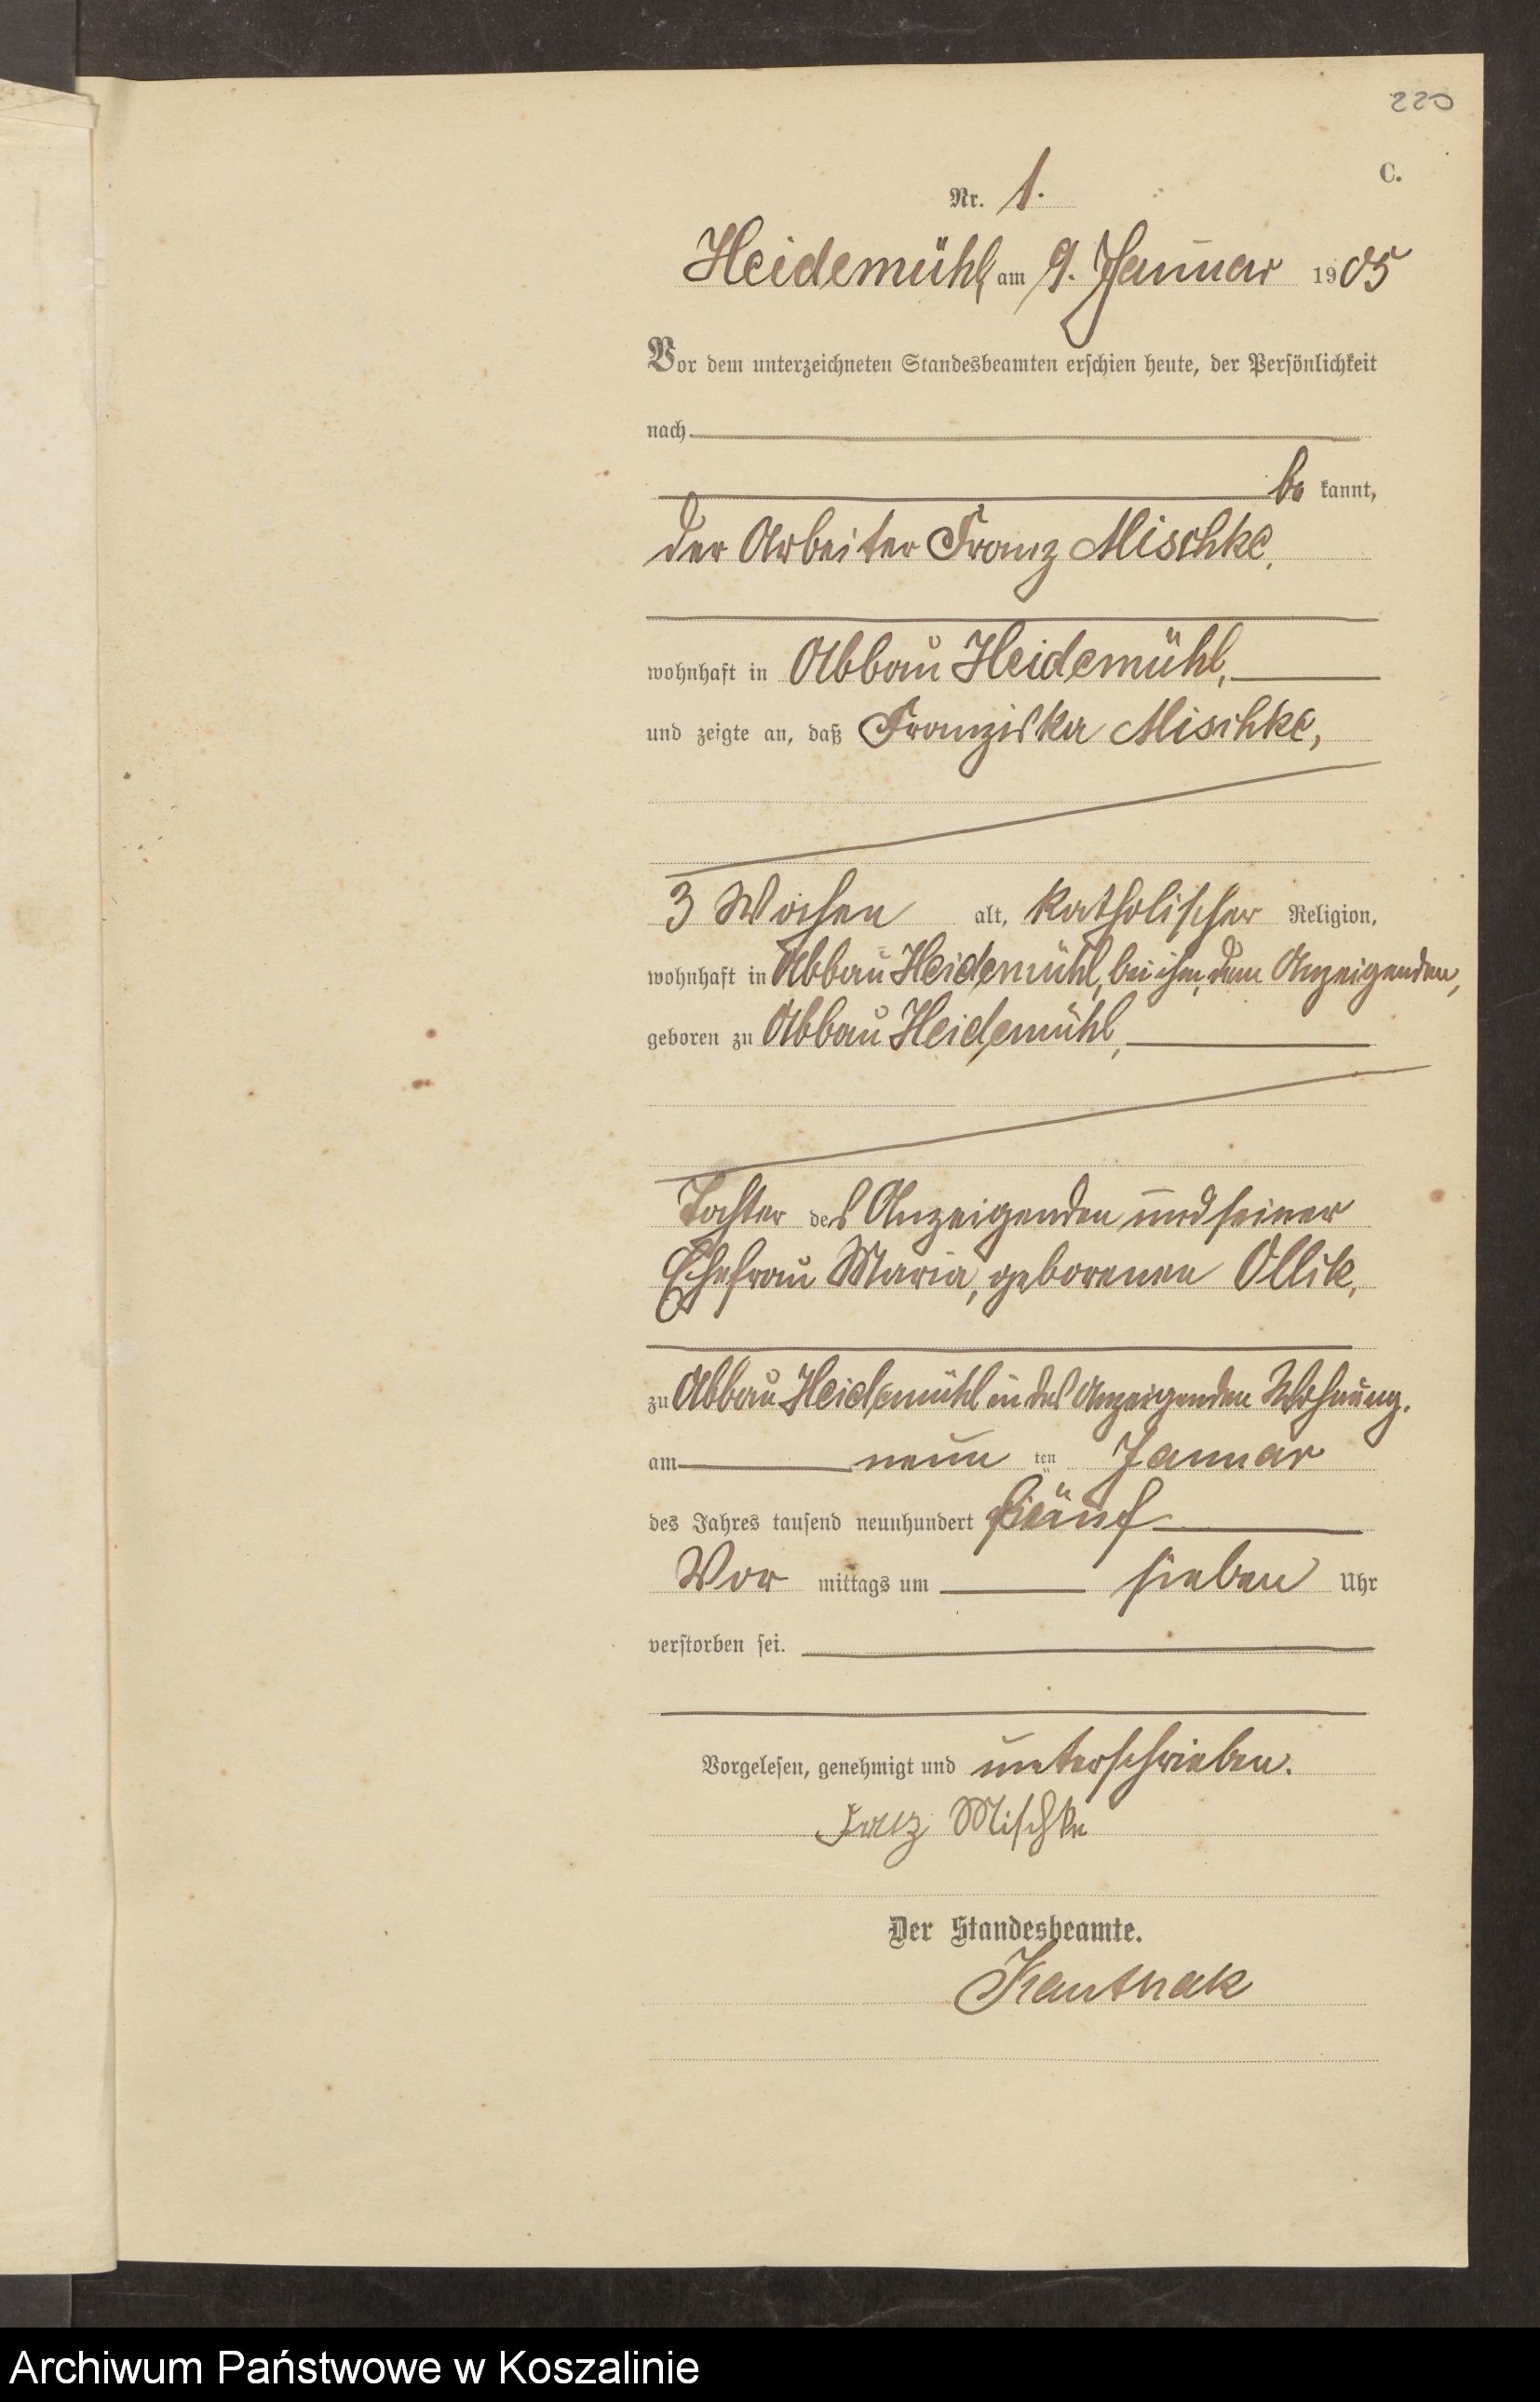 220
C.
Nr. 1.
Heidemühl am 9. Januar 1905
Vor dem unterzeichneten Standesbeamten erschien heute, der Persönlichkeit
nach
be kannt,
der Arbeiter Franz Mischke,
wohnhaft in Abbau Heidemühl,
und zeigte an, daß Franziska Mischke,
3 Wochen alt, katholischer Religion,
wohnhaft in Abbau Heidemühl, bei ihm, dem Anzeigenden,
geboren zu Abbau Heidemühl,
Tochter des Anzeigenden und seiner
Ehefrau Maria, geborenen Ollik,
zu Abbau Heidemühl in des Anzeigenden Wohnung.
am neun ten Januar
des Jahres tausend neunhundert fünf
Vor mittags um sieben Uhr
verstorben sei.
Vorgelesen, genehmigt und unterschrieben.
Franz Mischke
Der Standesbeamte.
Kantnak
Archiwum Państwowe w Koszalinie